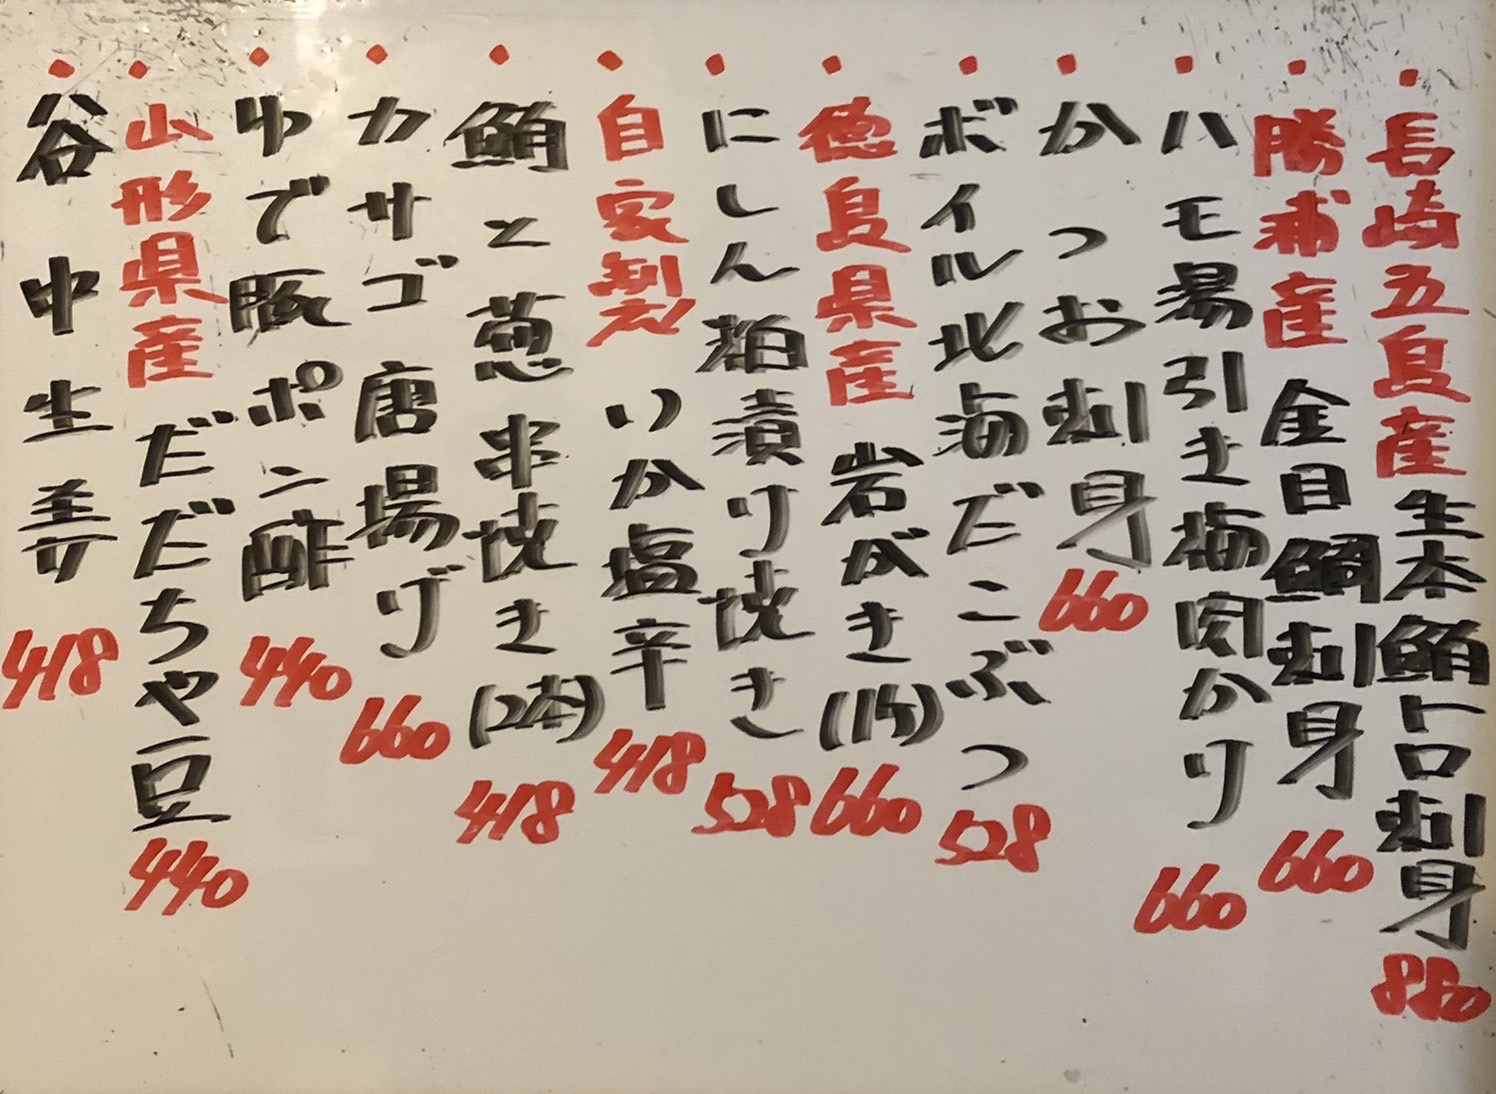 ・長崎五島産 生本鮪トロ刺身 880
・勝浦産 金目鯛刺身 660
・ハモ湯引き梅肉かり 660
・かつお刺身 660
・ボイル北海だこぶつ 528
・徳島県産 岩がき(1ケ) 660
・にしん粕漬り焼き 528
・自家製 いか塩辛 418
・鮪と葱串焼き(2本) 418
・カサゴ唐揚げ 660
・ゆで豚ポン酢 440
・山形県産 だだちゃ豆 440
・谷中生姜 418